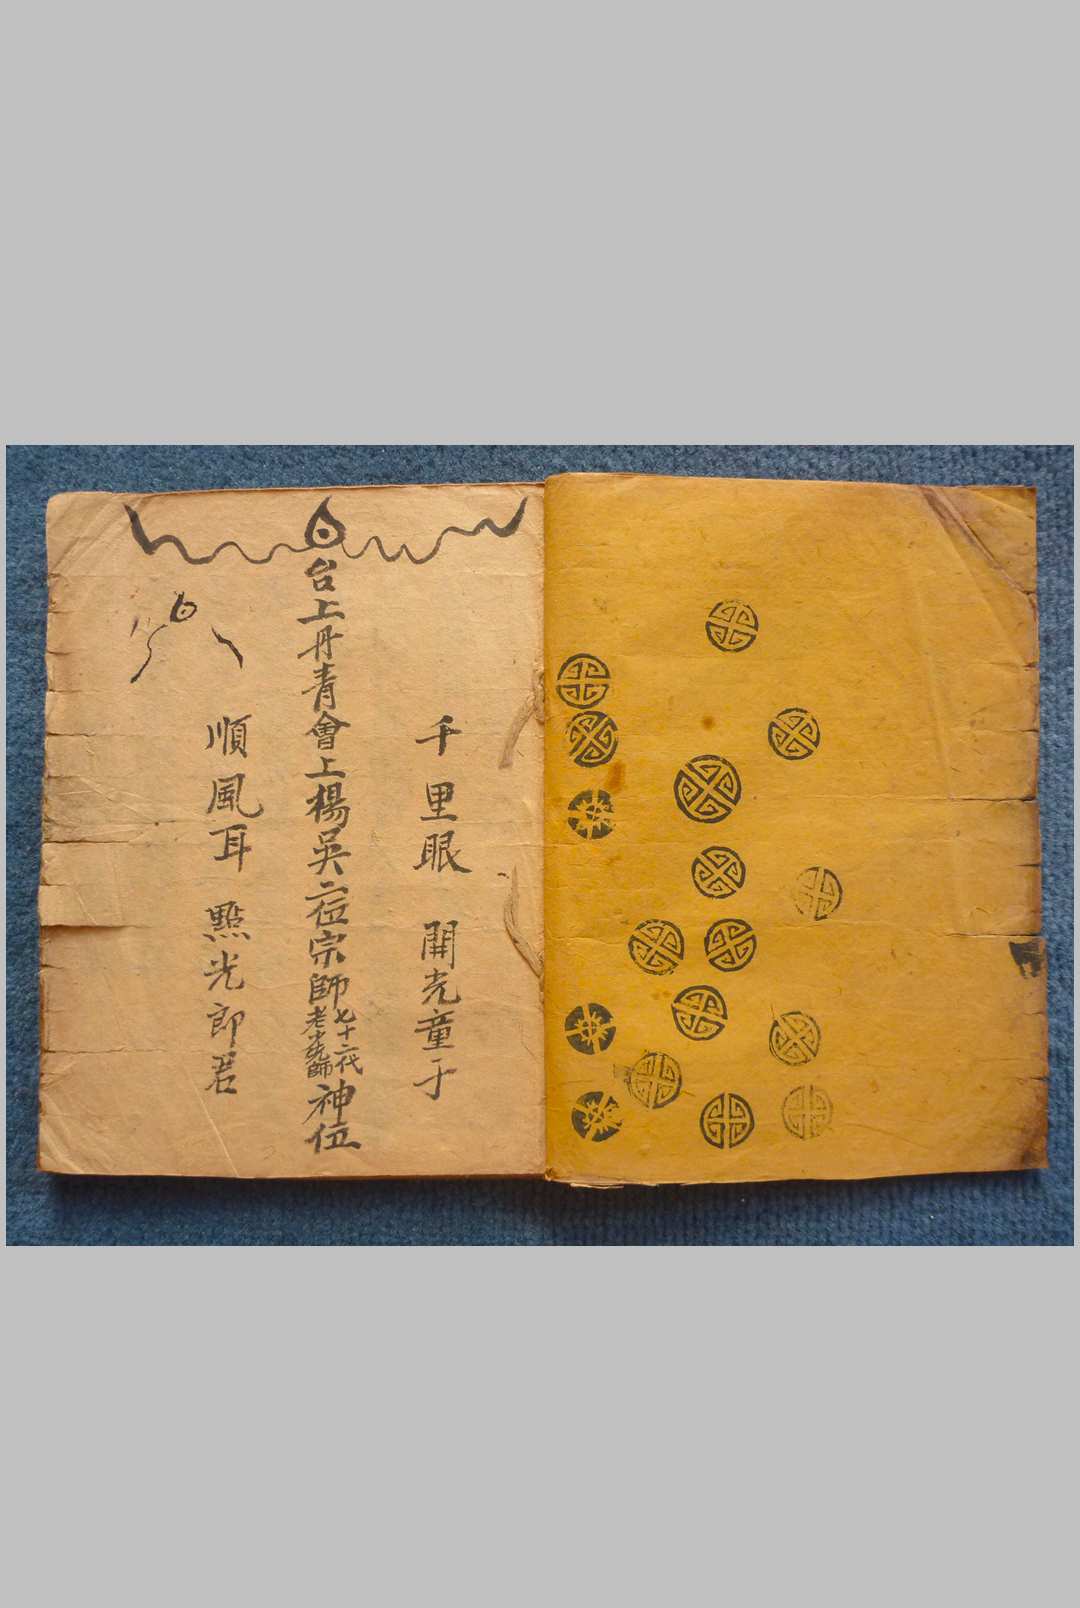 千里眼 開光童子
台上丹青會上楊吳二位宗師七十二代老先師神位
順風耳 點光郎君